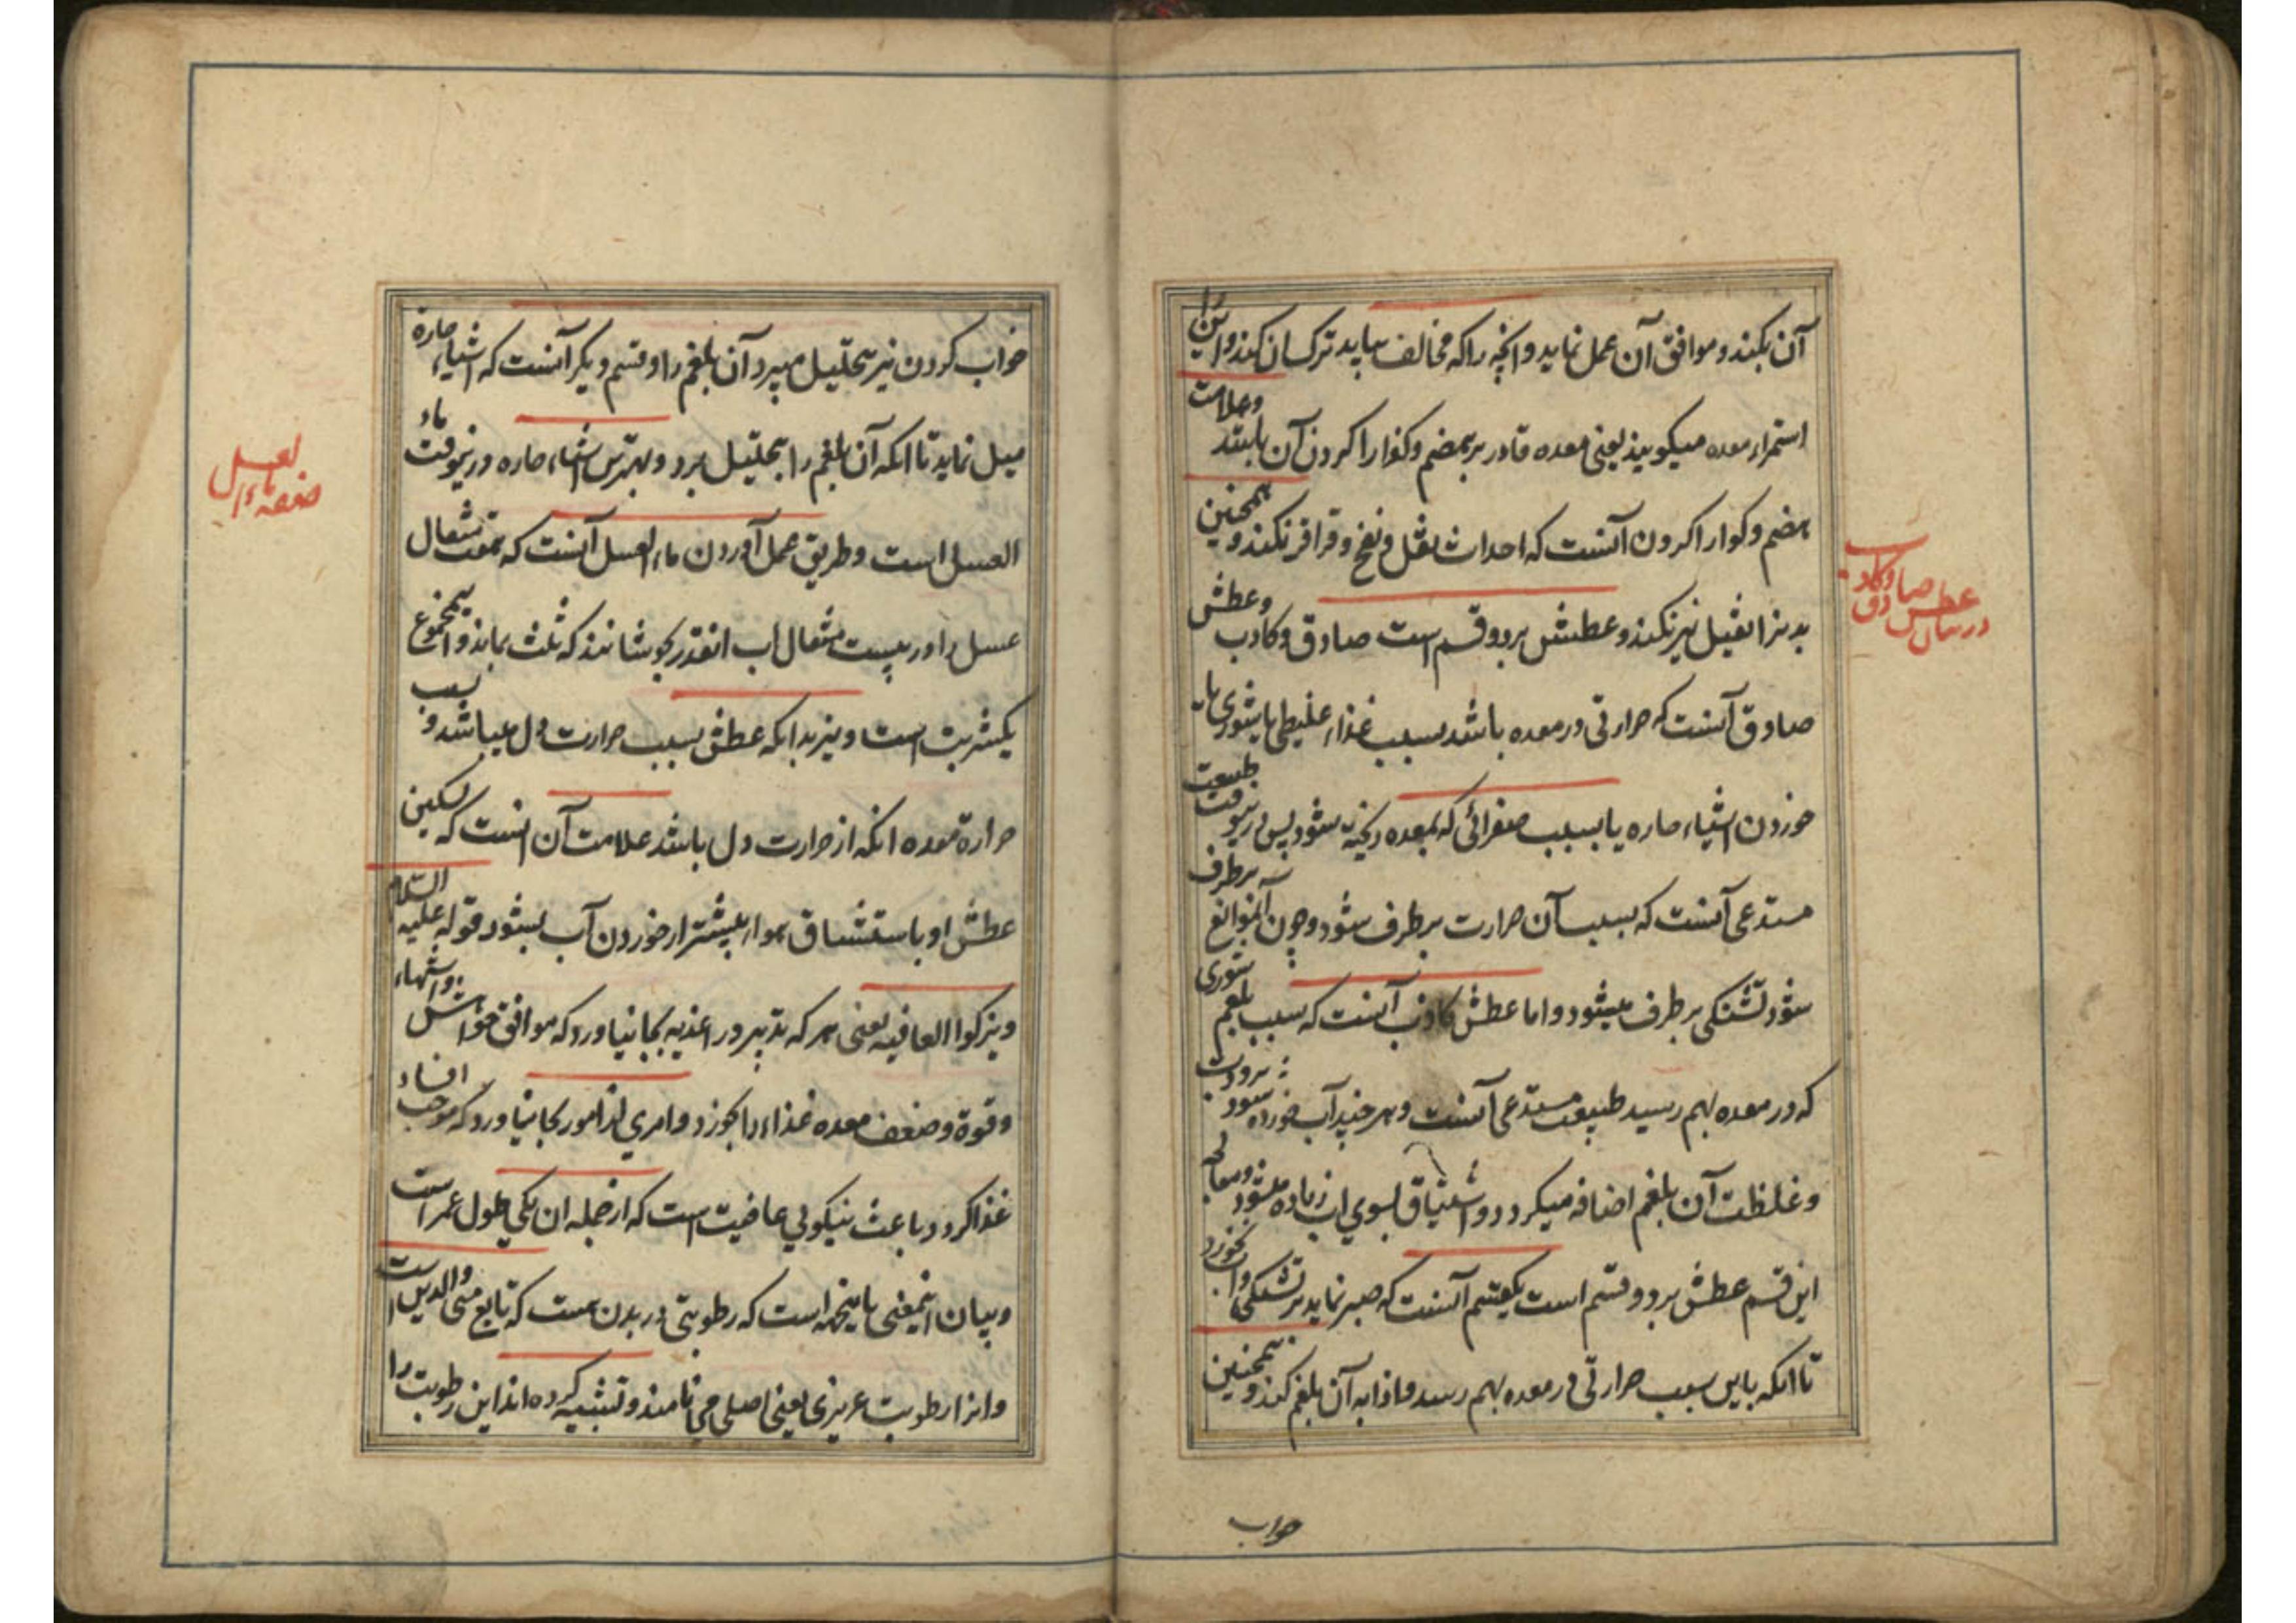 آن بکند و موافق آن عمل نماید و انچه را که مخالف بیابد ترک آن کند و این را
استمراء معده میکویند یعنی معده قادر بر هضم و کوارا کردن آن باشد و علامت
هضم و کوارا کردن آنست که احداث ثقل و نفخ و قراقر نکند و همچنین
بدنرا ثقیل نیز نکند و عطش بر دو قسم است صادق و کاذب و عطش
صادق آنست که حرارتی در معده باشد بسبب غذاء غلیظی یا شوری یا
خوردن اشیاء حاره یا بسبب صفرائی که بمعده ریخته شود پس درینوقت طبیعت
مستدعی آنست که بسبب آن حرارت بر طرف شود و چون آنموانع بر طرف
شود تشنکی بر طرف میشود و اما عطش کاذب آنست که بسبب بلغم شوری
که در معده بهم رسید طبیعت مستدعی آنست و هر چند آب خورده شود برودت
و غلظت آن بلغم اضافه میکردد و اشتیاق بسوی اب زیاده میشود و معالجه
این قسم عطش بر دو قسم است یکقسم آنست که صبر نماید بر تشنکی و اب نخورد
تا انکه باین سبب حرارتی در معده بهم رسد و اذابه آن بلغم کند و همچنین
خواب
در بیان عطش صادق و کاذب
خواب کردن نیز بتحلیل میبرد آن بلغم را و قسم دیکر آنست که اشیاء حاره
میل نماید تا انکه آن بلغم را بتحلیل برد و بهترین اشیاء حاره درینوقت ماء
العسل است و طریق عمل آوردن ماء العسل آنست که هفت مثقال
عسل را در بیست مثقال اب انقدر بجوشانند که ثلث بماند و اینمجموع
یکشربت است و نیز بدانکه عطش بسبب حرارت دل میباشد و بسبب
حرارة معده انکه از حرارت دل باشد علامت آن انست که تسکین
عطش او باستنشاق هوا بیشتر از خوردن آب بشود قوله علیه السلام
و یزکوا العافیه یعنی هر که تدبیر در اغذیه بجا بیاورد که موافق خواهش و اشتهاء
و قوة و ضعف معده غذاء را بخورد و امری از امور بجا نیاورد که موجب افساد
غذا کردد باعث نیکویی عافیت است که از جمله ان یکی طول عمر است
و بیان اینمعنی باینجهه است که رطوبتی در بدن هست که تابع منی والدین است
و انرا رطوبت عریزی یعنی اصلی می نامند و تشبیه کرده اند این رطوبت را
صفة ماء العسل